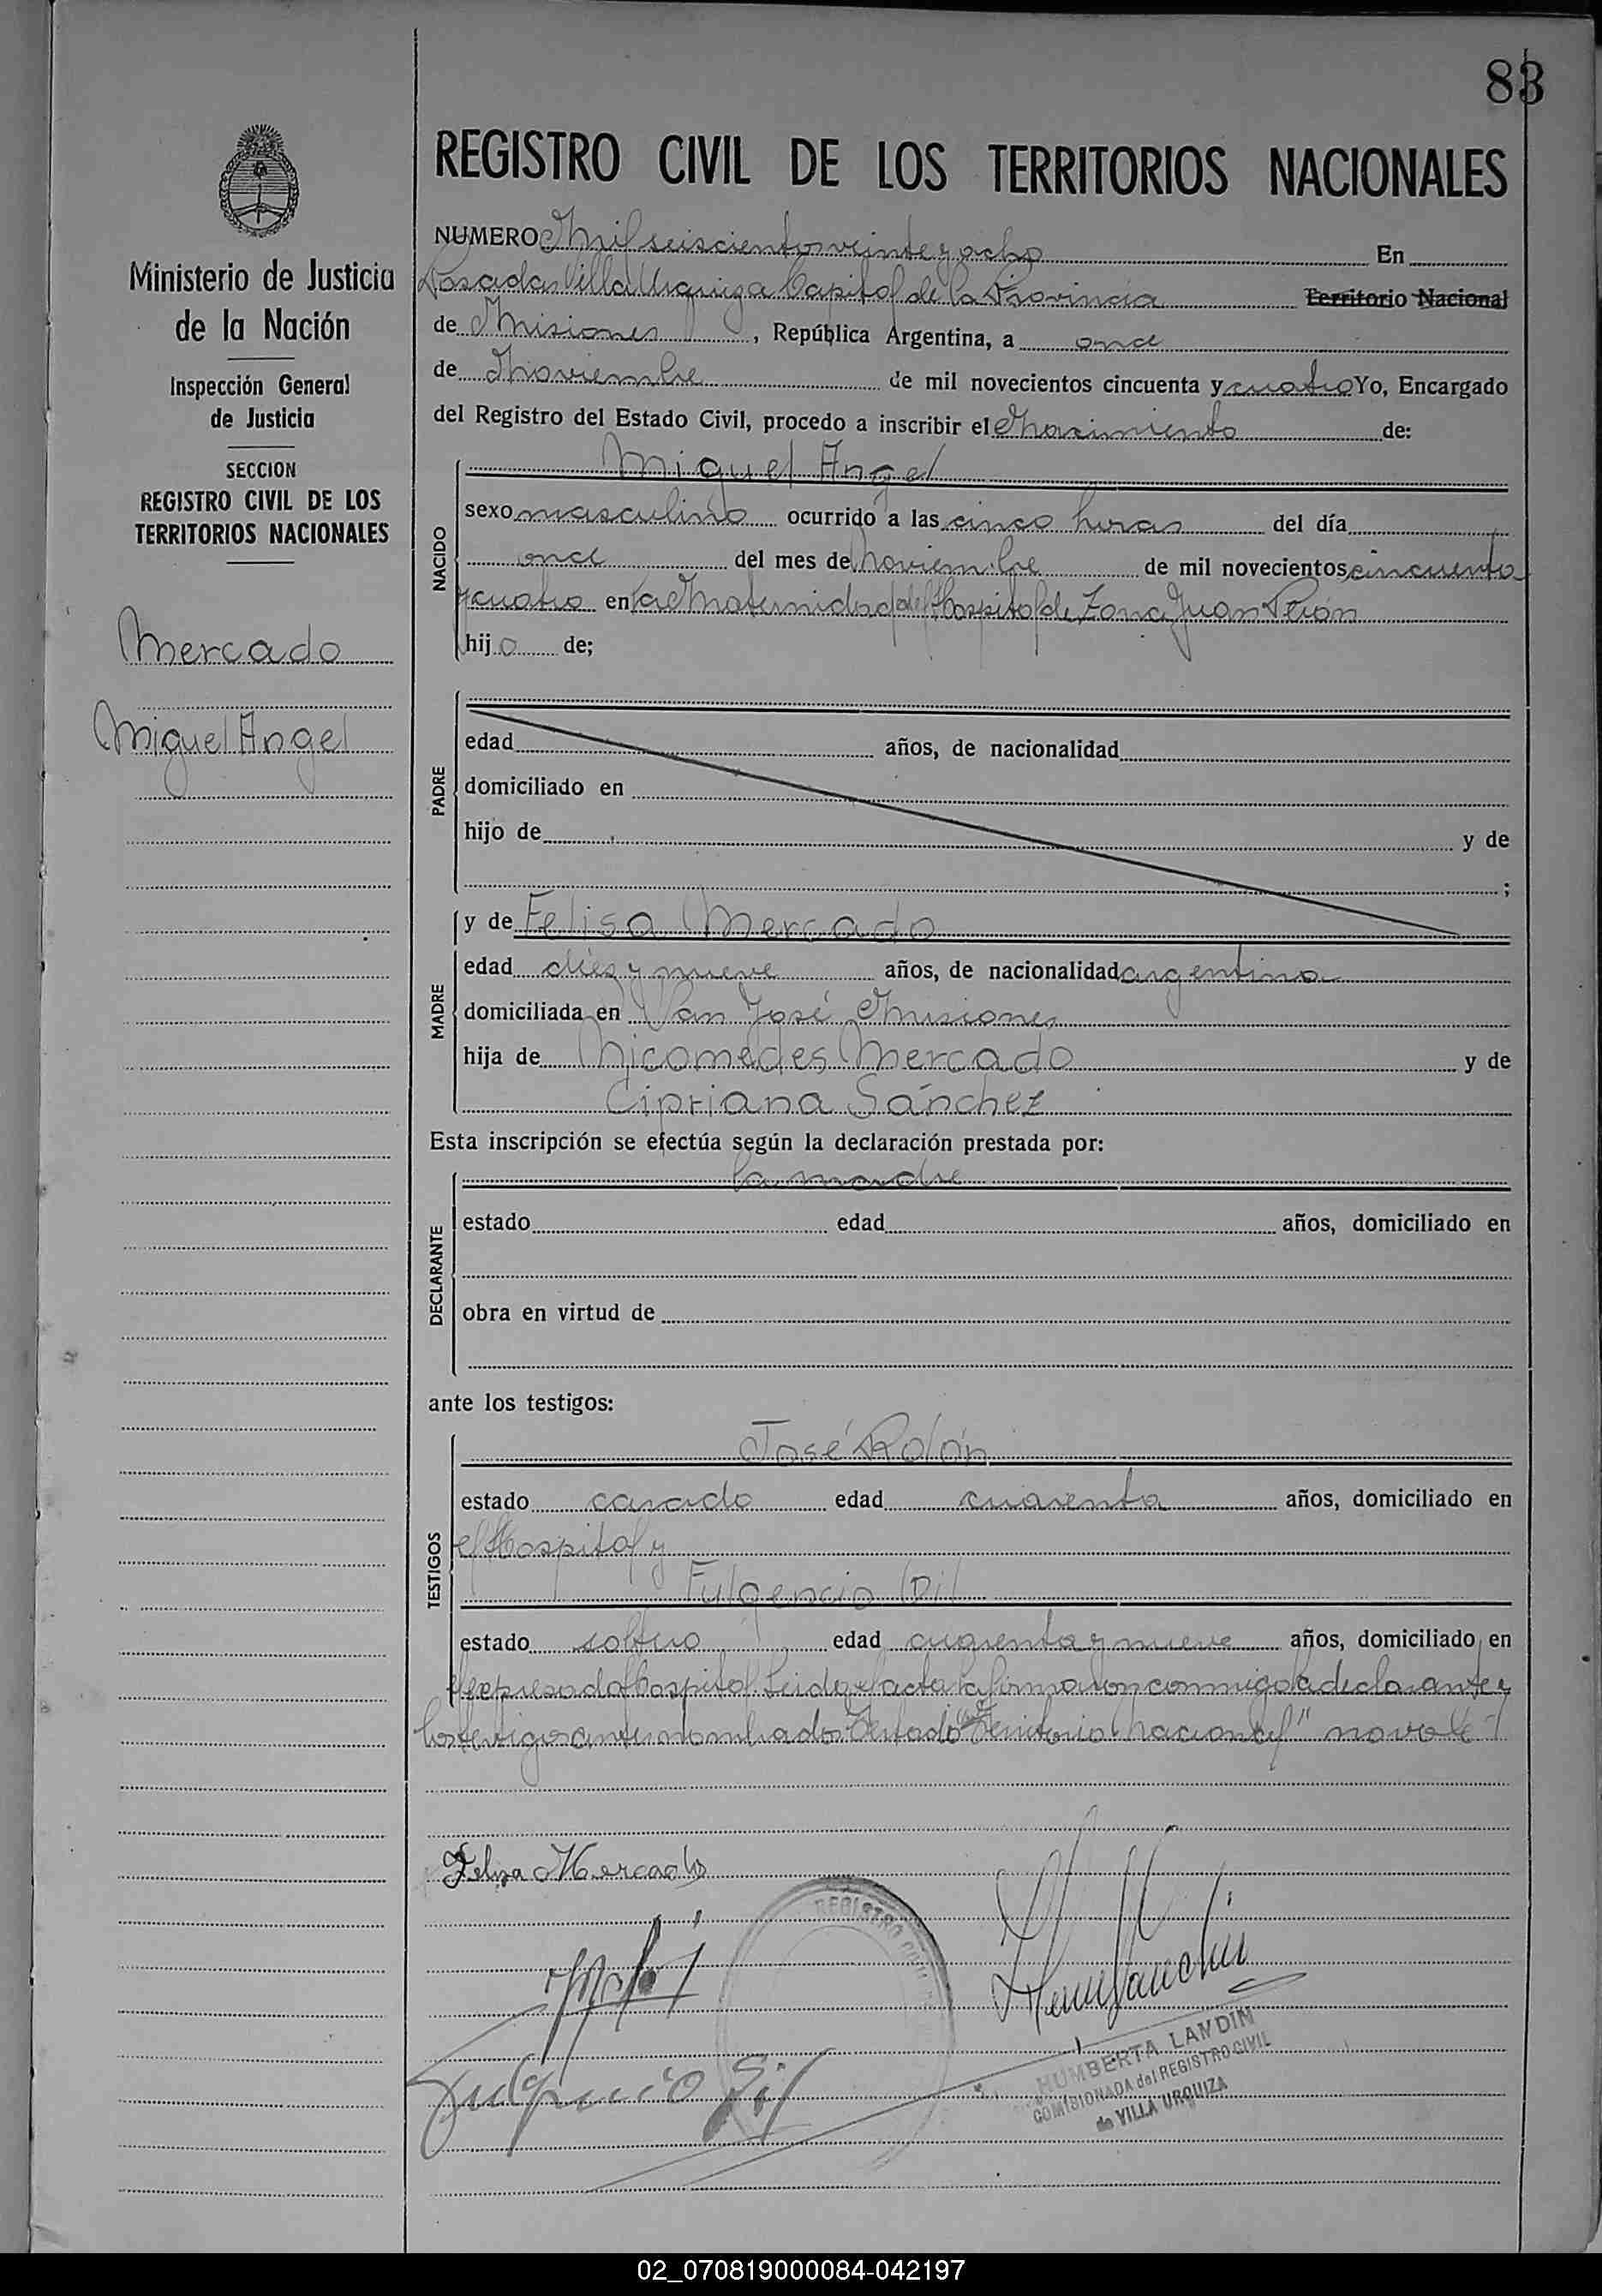 83
REGISTRO CIVIL DE LOS TERRITORIOS NACIONALES
Ministerio de Justicia
de la Nación
Inspección General
de Justicia
SECCION
REGISTRO CIVIL DE LOS
TERRITORIOS NACIONALES
Mercado
Miguel Angel
NUMERO Mil seiscientos veinte y ocho En
Posadas Villa Urquiza Capital de la Provincia Territorio Nacional
de Misiones, República Argentina, a once
de Noviembre de mil novecientos cincuenta y cuatro Yo, Encargado
del Registro del Estado Civil, procedo a inscribir el Nacimiento de:
NACIDO
Miguel Angel
sexo masculino ocurrido a las cinco horas del día
once del mes de Noviembre de mil novecientos cincuenta
y cuatro en la Maternidad del Hospital de Zona Juan Perón
hijo de;
PADRE
edad años, de nacionalidad
domiciliado en
hijo de y de
;
MADRE
y de Felisa Mercado
edad diez y nueve años, de nacionalidad argentina
domiciliada en San José Misiones
hija de Nicomedes Mercado y de
Cipriana Sánchez
Esta inscripción se efectúa según la declaración prestada por:
DECLARANTE
la madre
estado edad años, domiciliado en
obra en virtud de
ante los testigos:
TESTIGOS
José Rolón
estado casado edad cuarenta años, domiciliado en
el Hospital y
Fulgencio Gil
estado soltero edad cuarenta y nueve años, domiciliado en
el expresado Hospital. Leida el acta la firmaron conmigo la declarante y
los testigos antes nombrados. Testado "Territorio Nacional" no vale
Felisa Mercado
Fulgencio Gil
REGISTRO CIVIL
HUMBERTA LANDIN
COMISIONADA del REGISTRO CIVIL
de VILLA URQUIZA
02_070819000084-042197